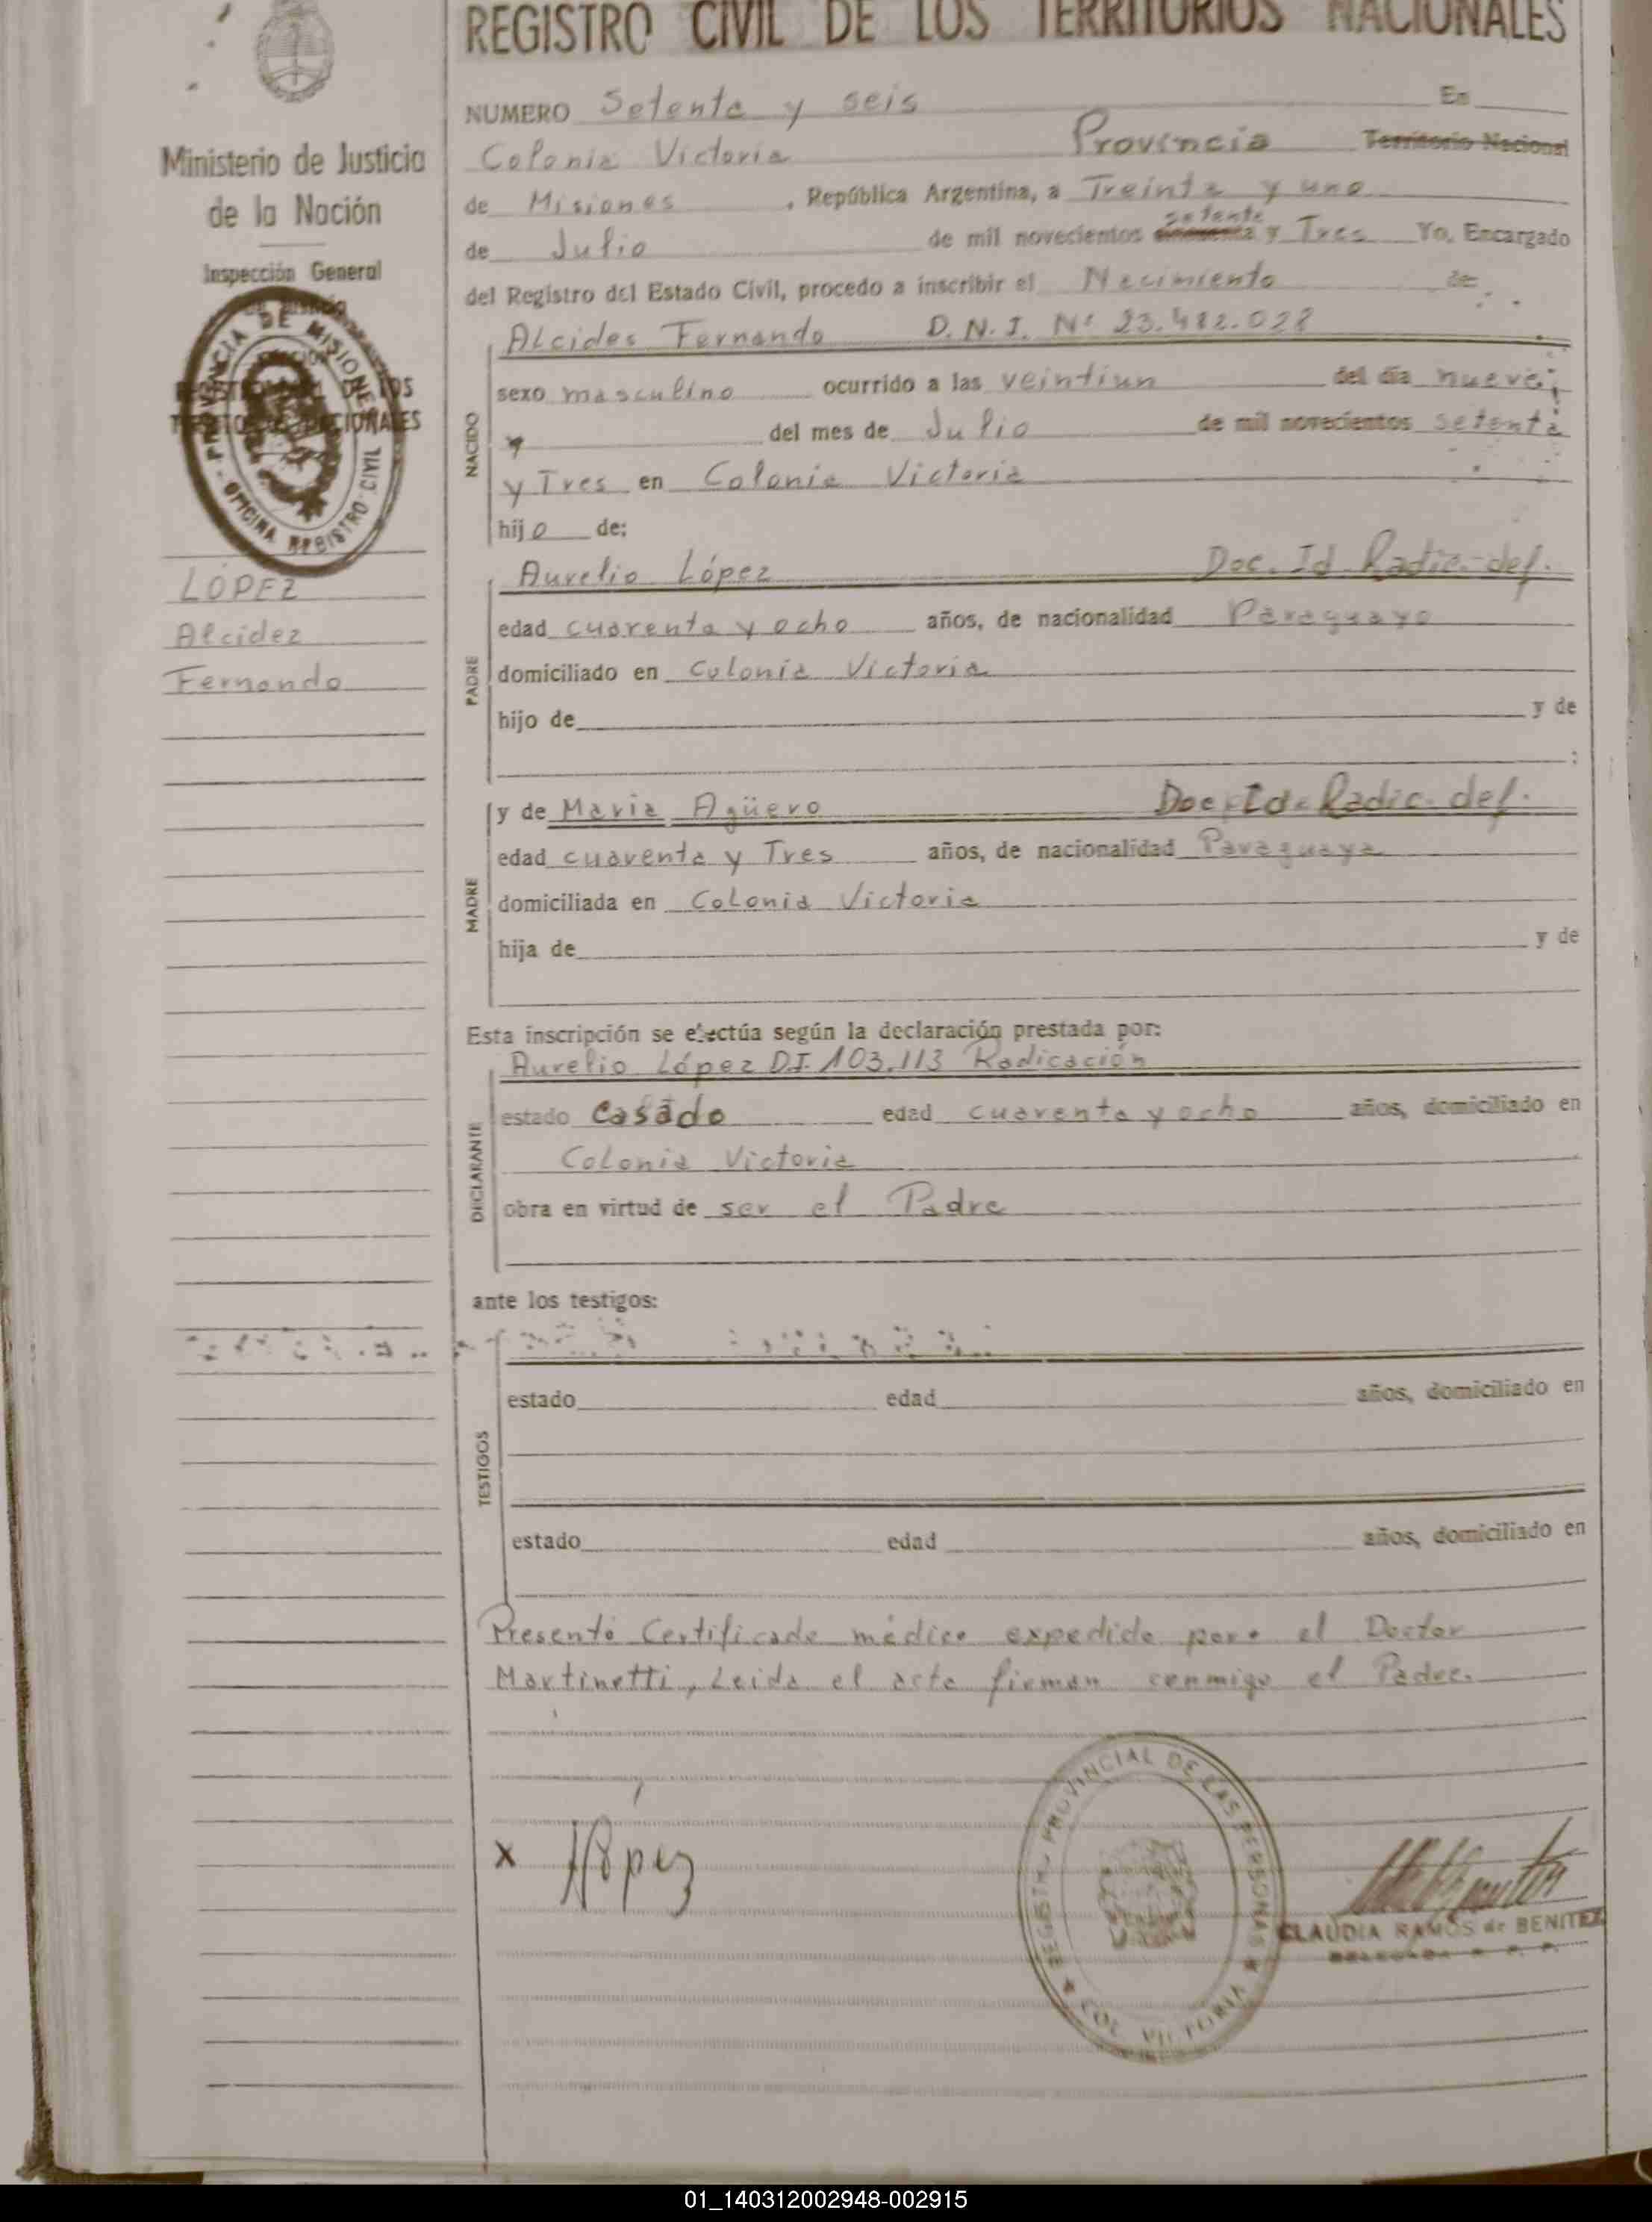 REGISTRO CIVIL DE LOS TERRITORIOS NACIONALES
Ministerio de Justicia
de la Nación
Inspección General
PROVINCIA DE MISIONES
OFICINA REGISTRO CIVIL
LÓPEZ
Alcidez
Fernando
NUMERO Setenta y seis En
Colonia Victoria Provincia Territorio Nacional
de Misiones , República Argentina, a Treinta y uno
de Julio de mil novecientos setenta y Tres Yo, Encargado
del Registro del Estado Civil, procedo a inscribir el Nacimiento de
NACIDO
Alcides Fernando D.N.I. Nº 23.482.028
sexo masculino ocurrido a las veintiun del día nueve
del mes de Julio de mil novecientos setenta
y Tres en Colonia Victoria
hijo de:
PADRE
Aurelio López Doc. Id Radic. def.
edad cuarenta y ocho años, de nacionalidad Paraguayo
domiciliado en Colonia Victoria
hijo de y de
;
MADRE
y de Maria Agüero Doc. Id. Radic. def.
edad cuarenta y Tres años, de nacionalidad Paraguaya
domiciliada en Colonia Victoria
hija de y de
Esta inscripción se efectúa según la declaración prestada por:
DECLARANTE
Aurelio López D.I. 103.113 Radicación
estado Casado edad cuarenta y ocho años, domiciliado en
Colonia Victoria
obra en virtud de ser el Padre
ante los testigos:
TESTIGOS
estado edad años, domiciliado en
estado edad años, domiciliado en
Presentó Certificado médico expedido por el Doctor
Martinetti, Leida el acta firman conmigo el Padre.
x López
REGISTRO PROVINCIAL DE LAS PERSONAS
COL VICTORIA
CLAUDIA RAMOS de BENITEZ
01_140312002948-002915